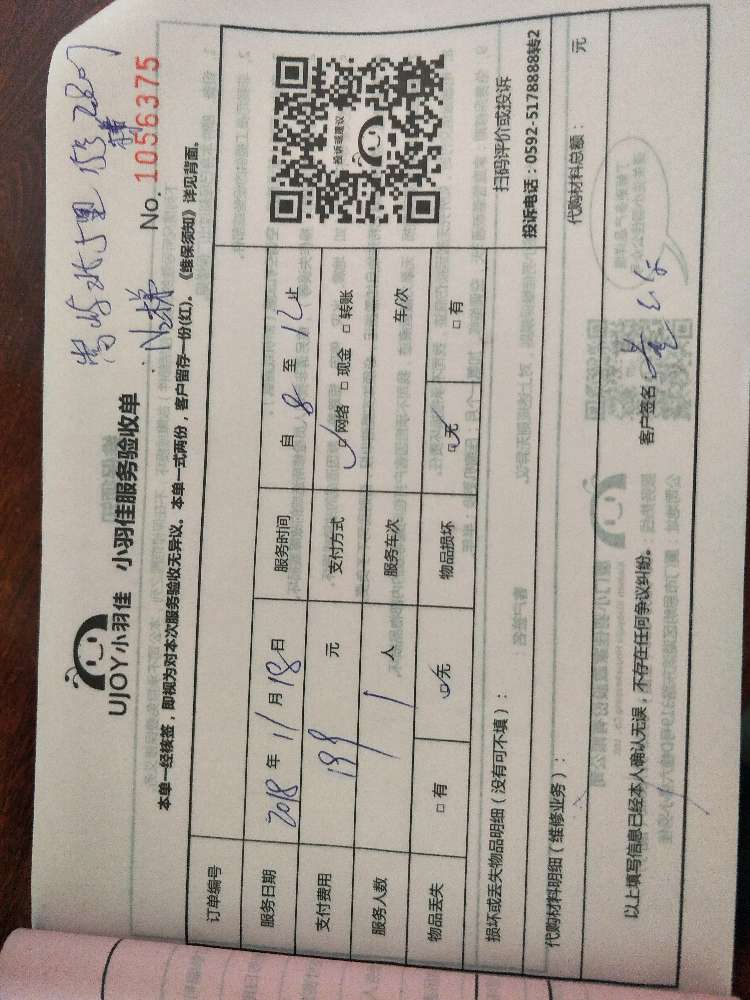 UJOY小羽佳 小羽佳服务验收单
No. 10556375
本单一经核签，即视为对本次服务验收无异议。本单一式两份，客户留存一份(红)。《维保须知》详见背面。
订单编号
服务日期 2018 年 11 月 18 日 服务时间 自 8 至 12 止
支付费用 199 元 支付方式 网络 □ 现金 □ 转账
服务人数 1 人 服务车次 车/次
物品丢失 □ 有 无 物品损坏 无 □ 有
投诉或建议
扫码评价或投诉
投诉电话：0592-5178888转2
损坏或丢失物品明细（没有可不填）：
代购材料明细（维修业务）： 代购材料总额： 元
以上填写信息已经本人确认无误，不存在任何争议纠纷。 客户签名：